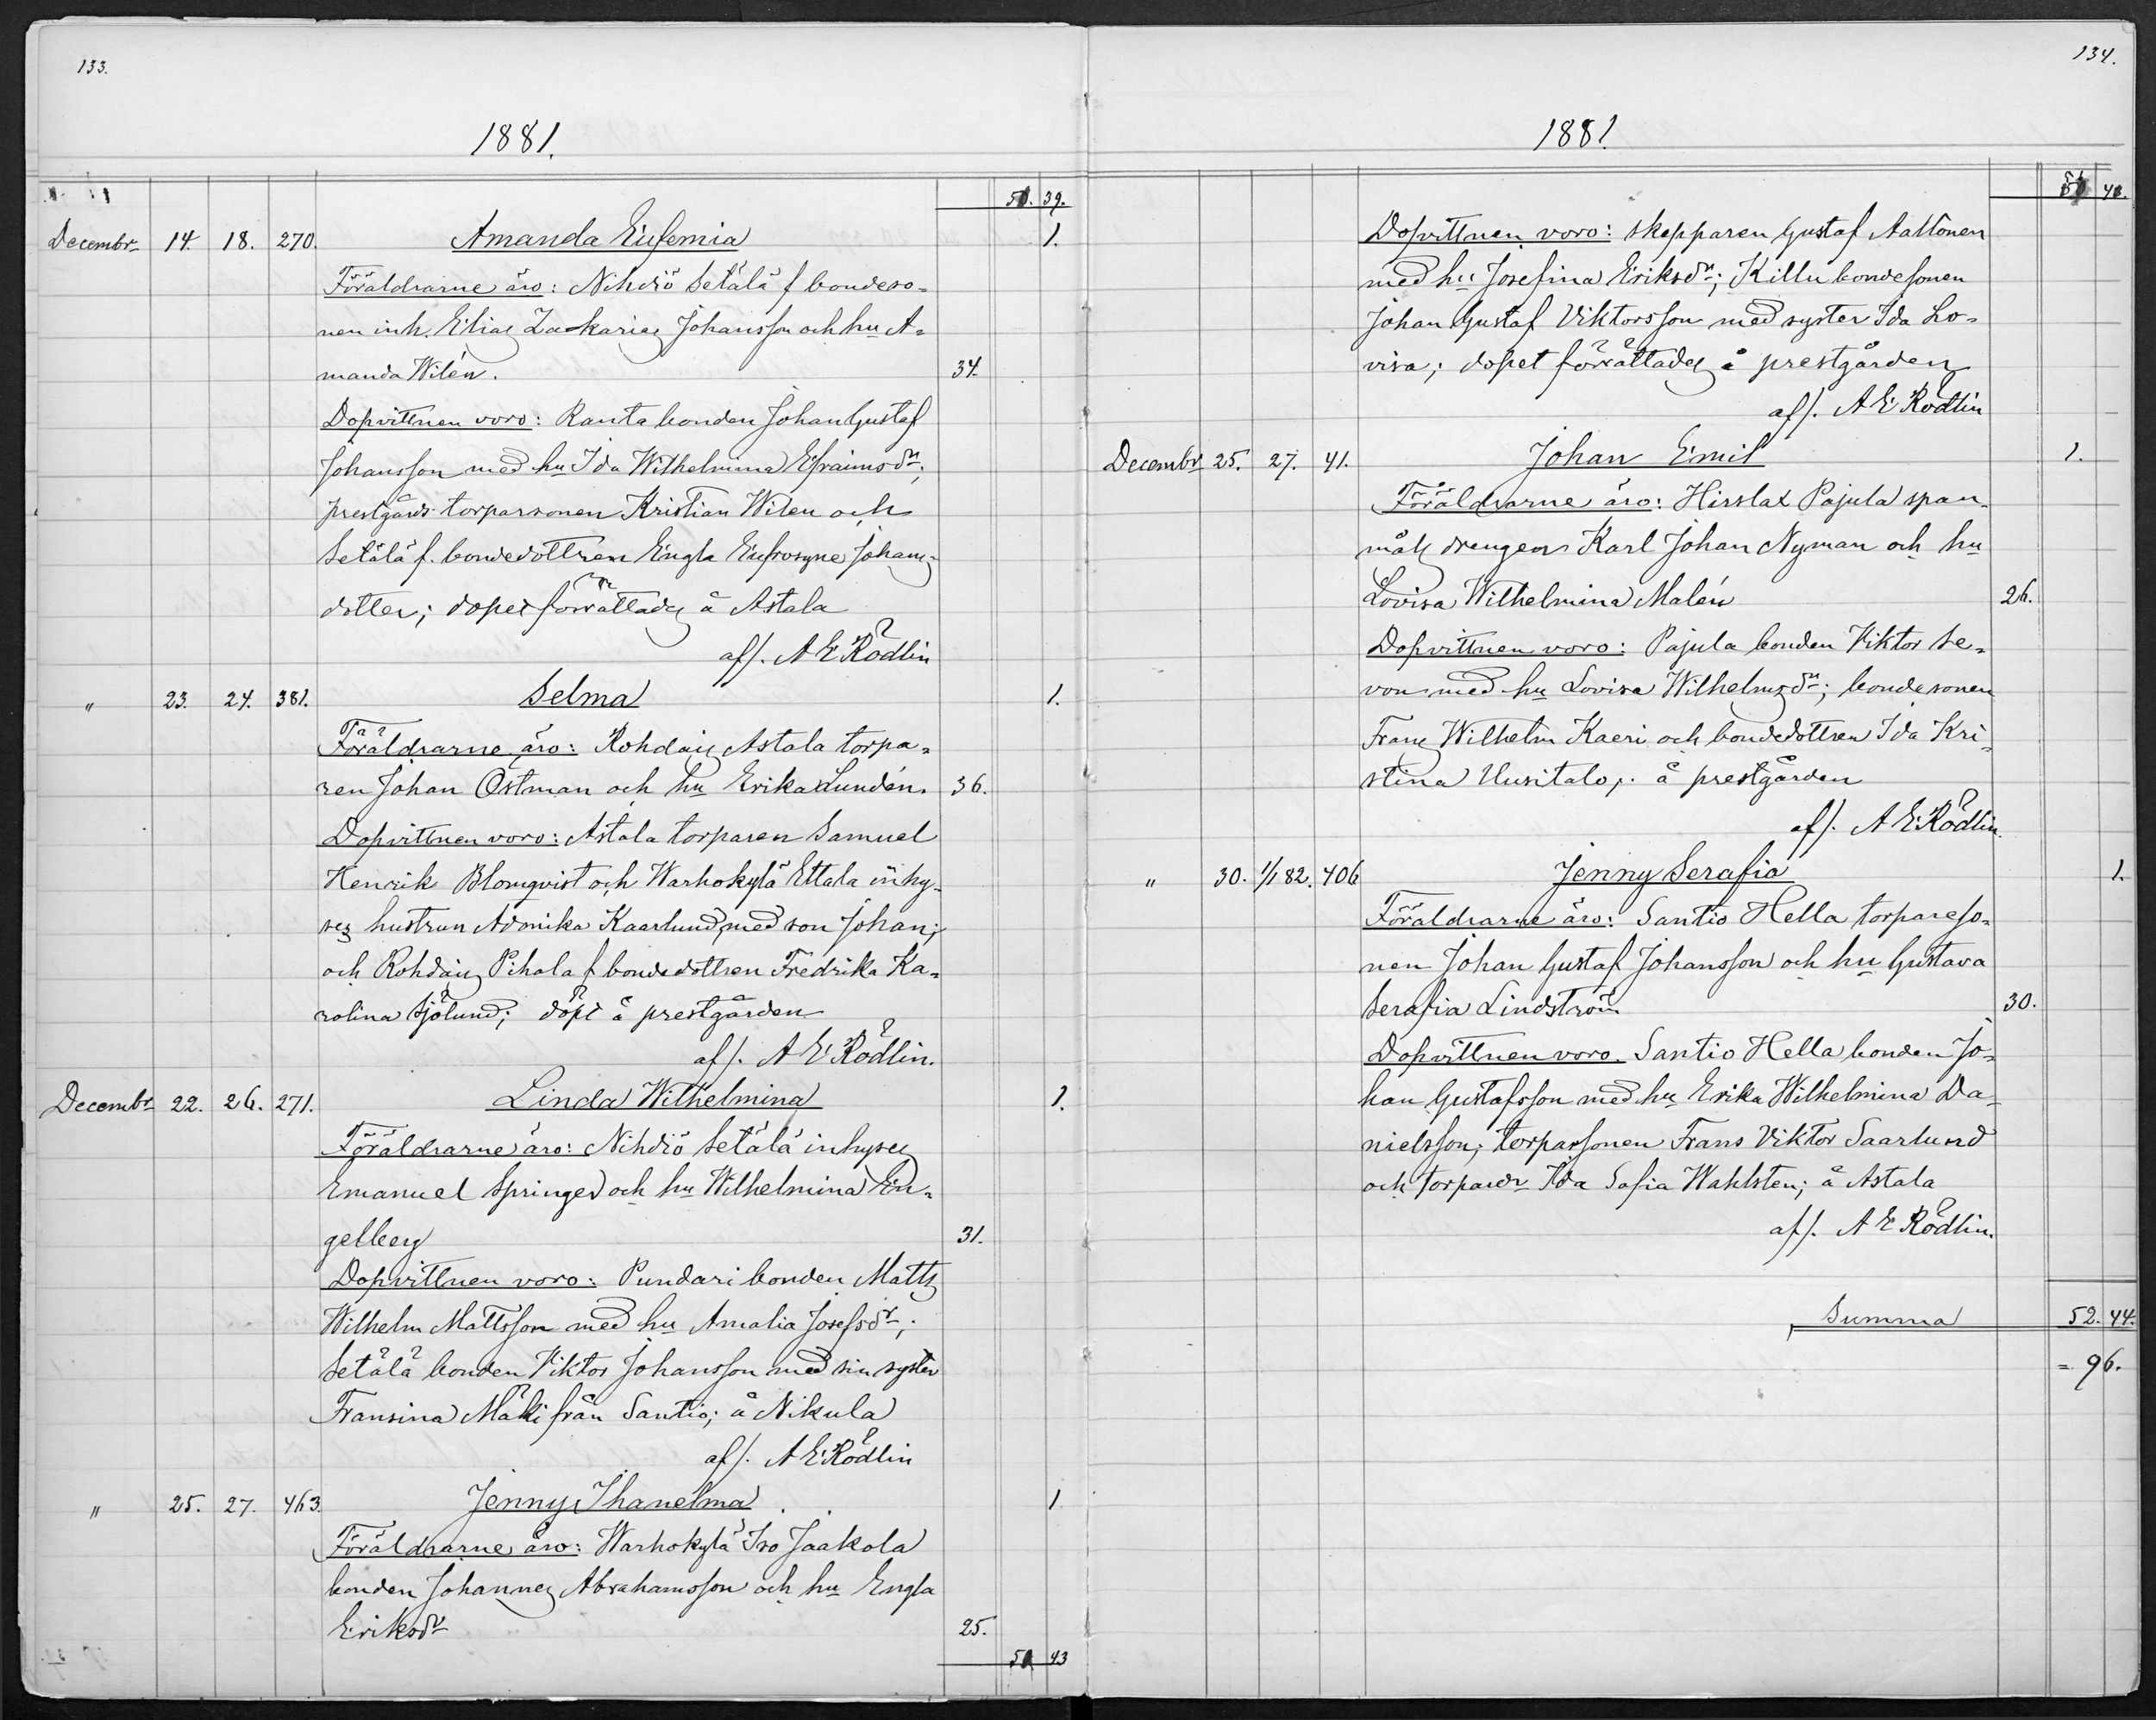 133.
1881.
51. 39.
Decembr 14. 18. 270. Amanda Eufemia 1.
Föräldrarne äro: Nihdiö Setälä f bondeso-
nen inh. Elias Zackarias Johansson och hu A-
manda Wilén. 34.
Dopvittnen voro: Ranta bonden Johan Gustaf
Johansson med hu Ida Wilhelmina Efraimsdr;
prestgårds torparsonen Kristian Wilen och
Setälä f. bondedottren Engla Eufrosyne Johans-
dotter; dopet förrättades å Astala
af/. A E Rödlin
" 23. 24. 381. Selma 1.
Föräldrarne äro: Rohdais Astala torpa-
ren Johan Östman och hu Erika Lundén. 36.
Dopvittnen voro: Astala torparen Samuel
Henrik Blomqvist och Warhokylä Ettala inhy-
ses hustrun Adonika Kaarlund, med son Johan;
och Rohdais Pihala f bondedottren Fredrika Ka-
rolina Sjölund; döpt å prestgården
af/. A E Rödlin.
Decembr 22. 26. 271. Linda Wilhelmina 1.
Föräldrarne äro: Nihdiö Setälä inhyses
Emanuel Springer och hu Wilhelmina En-
gelberg 31.
Dopvittnen voro: Pundari bonden Matts
Wilhelm Mattsson med hu Amalia Josefsdr;
Setälä bonden Viktor Johansson med sin syster
Fransina Mäki från Santio; å Nikula
af/. A E Rödlin
" 25. 27. 463. Jenny Ihanelma 1
Föräldrarne äro: Warhokylä Iso Jaakola
bonden Johannes Abrahamsson och hu Engla
Eriksdr 25.
51 43
134.
1881.
51 43.
Dopvittnen voro: skepparen Gustaf Aaltonen
med hu Josefina Eriksdr; Killu bondesonen
Johan Gustaf Viktorsson med syster Ida Lo-
visa; dopet förrättades å prestgården
af/. A E Rödlin
Decembr 25. 27. 41. Johan Emil 1.
Föräldrarne äro: Hirslax Pajula span-
måls drengen Karl Johan Nyman och hu
Lovisa Wilhelmina Malén 26.
Dopvittnen voro: Pajula bonden Viktor Se-
von med hu Lovisa Wilhelmsdr; bondesonen
Frans Wilhelm Kaeri och bondedottren Ida Kri-
stina Uusitalo; å prestgården
af/. A E Rödlin.
" 30. 1/1 82. 406 Jenny Serafia 1.
Föräldrarne äro: Santio Hella torpareso-
nen Johan Gustaf Johansson och hu Gustava
Serafia Lindström 30.
Dopvittnen voro. Santio Hella bonden Jo-
han Gustafsson med hu Erika Wilhelmina Da-
nielsson; torparsonen Frans Viktor Saarlund
och torpardr Ida Sofia Wahlsten; å Astala
af/. A E Rödlin.
Summa 52. 44.
= 96.